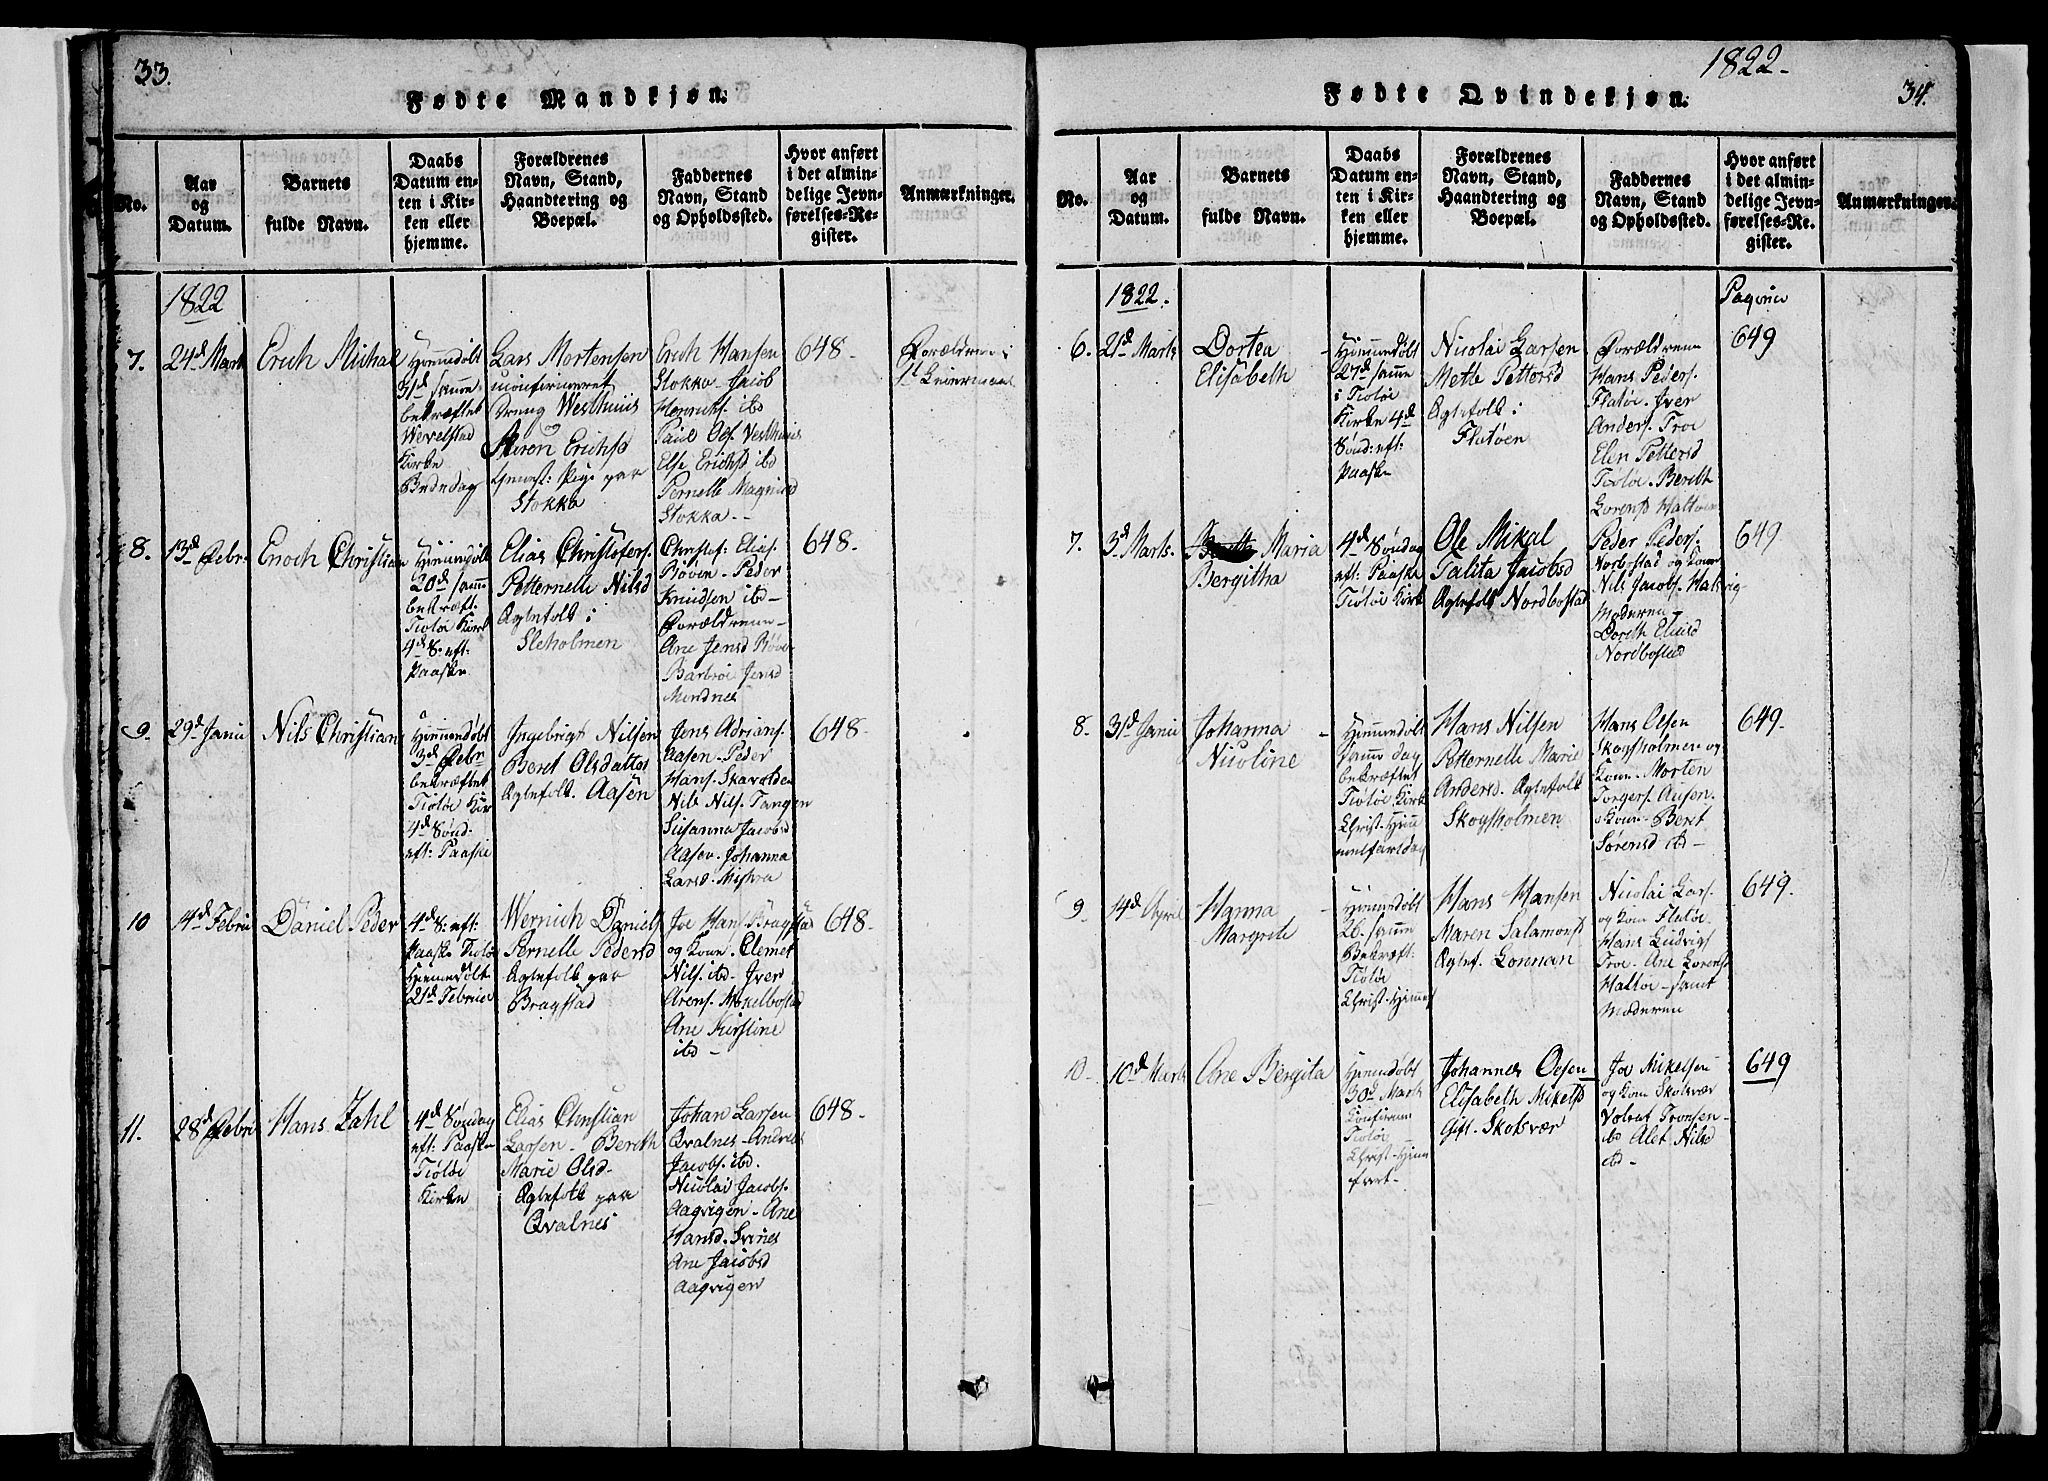 33.
Fødte Mandkjøn.
No.
Aar
og
Datum.
Barnets
fulde Navn.
Daabs
Datum en-
ten i Kir-
ken eller
hjemme.
Forældrenes
Navn, Stand,
Haandtering og
Boepæl.
Faddernes
Navn, Stand
og Opholdssted.
Hvor anført
i det almin-
delige Jevn-
førelses-Re-
gister.
Anmærkninger.
1822
7.
24d Marts
Erich Michal
Hjemmedøbt
31d samme
bekræftet
Wevelstad
Kirke
Bededag
Lars Mortensen
uconfirmeret
Dreng Westhuus
og
Maren Erichsd
paa
Stokka
Erich Hansen
Stokka - Jacob
Henrichs. ibd
Paul Ols. Vesthuus
Else Erichsd ibd
Pernelle Magnusd
Stokka -
648 -
Forældrenes
1t Leiermaal
8.
13d Febr
Enoch Christian
Hjemmedøbt
20d samme
bekræft.
Tiøtøe Kirk
4d S. eft:
Paaske
Elias Christofers.
Petternelle Nilsd
Ægtefolk i
Sleholmen
Christof: Elias.
Røven - Peder
Knudsen ibd -
Forældrene -
Ane Jensd Røven
Barbroe Jensd
Mindnes
648 -
9.
29d Janu
Nils Christian
Hjemmedøbt
3d Febr
bekræftet
Tiøtøe Kir
4d Sønd:
eft: Paaske
Ingebrigt Nilsen
Beret Olsdatter
Ægtefolk. Aasen
Jens Adrians.
Aasen - Peder
Hans. Skavolden
Nils Nils. Tangen
Susanna Jacobsd
Aasen. Johanna
Larsd. Mistra
648 -
10
14d Febru
Daniel Peder
4d S: eft:
Paaske Tiøtøe
Hjemmedøbt
21d Februar
Wernich Daniels
Pernelle Pedersd
Ægtefolk paa
Bragstad
Joe Hans. Bragstad
og Kone - Clemet
Nils. ibd - Iver
Arens. Mikelbostad
Ane Kirstine
ibd -
648 -
11.
28d Febru
Hans Zahl
4d Søndag
eft: Paaske
Tiøtøe
Kirke
Elias Christian
Larsen - Bereth
Marie Olsd -
Ægtefolk paa
Qvalnes
Johan Larsen
Qvalnes - Andreas
Jacobs. ibd.
Nicolai Jacobs.
Aagvigen - Ane
Hansd. Svines
Ane Jacobsd
Aagvigen
648 -
1822 -
34.
Fødte Qvindekjøn.
No.
Aar
og
Datum.
Barnets
fulde Navn.
Daabs
Datum en-
ten i Kir-
ken eller
hjemme.
Forældrenes
Navn, Stand,
Haandtering og
Boepæl.
Faddernes
Navn, Stand
og Opholdssted.
Hvor anført
i det almin-
delige Jevn-
førelses-Re-
gister.
Anmærkninger.
1822.
Pagina
6.
21d Marts
Dortea
Elisabeth
Hjemmedøbt
27d samme
i Tiøtøe
Kirke 4d
Sønd: eft:
Paaske
Nicolai Larsen
Mette Pettersd
Ægtefolk i
Flatøen
Forældrene
Hans Peders.
Flatøe. Iver
Anders. Troe
Elen Pettersd
Tiøtøe. Bereth
Lorensd Hattøen
649
7.
3d Marts.
Maria
Bergitha
4d Søndag
eft: Paaske
Tiøtøe Kirk
Ole Mikal
Talita Jacobsd
Ægtefolk Nordbostad
Peder Peders.
Norbostad og Kone
Nils Jacobs. Halsvig
Moderen -
Doreth Eliasd
Nordbostad
649
8.
31d Janu
Johanna
Nicoline
Hjemmedøbt
samme dag
bekræftet
Tiøtøe Kirk
Christ-Him
melfartsdag
Hans Nilsen
Petternelle Marie
Andersd. Ægtefolk
Skogsholmen
Hans Olsen
Skogsholmen og
Kone - Morten
Torgers. Ausen.
Kone - Beret
Sørensd ibd -
649 -
9.
14d April
Hanna
Margrete
Hjemmedøbt
26. samme
Bekræft:
Tiøtøe
Christ-Himmel
Hans Hansen
Maren Salamonsd
Ægtef. Lonnan
Nicolai Lars.
og Kone Flatøe.
Hans Ludvigs
Troe - Ane Lorensd
Hattøe - samt
Moderen
649 -
10 -
10d Marts
Ane Bergita
Hjemmedøbt
30d Marts
Confirem
Tiøtøe
Christ-Him
fart -
Johannes Olsen
Elisabeth Mikelsd
Gift. Skotsvær
Joe Mikelsen
og Kone Skotsvær
Volrat Tronsen
ibd Alet Nilsd
ibd -
649